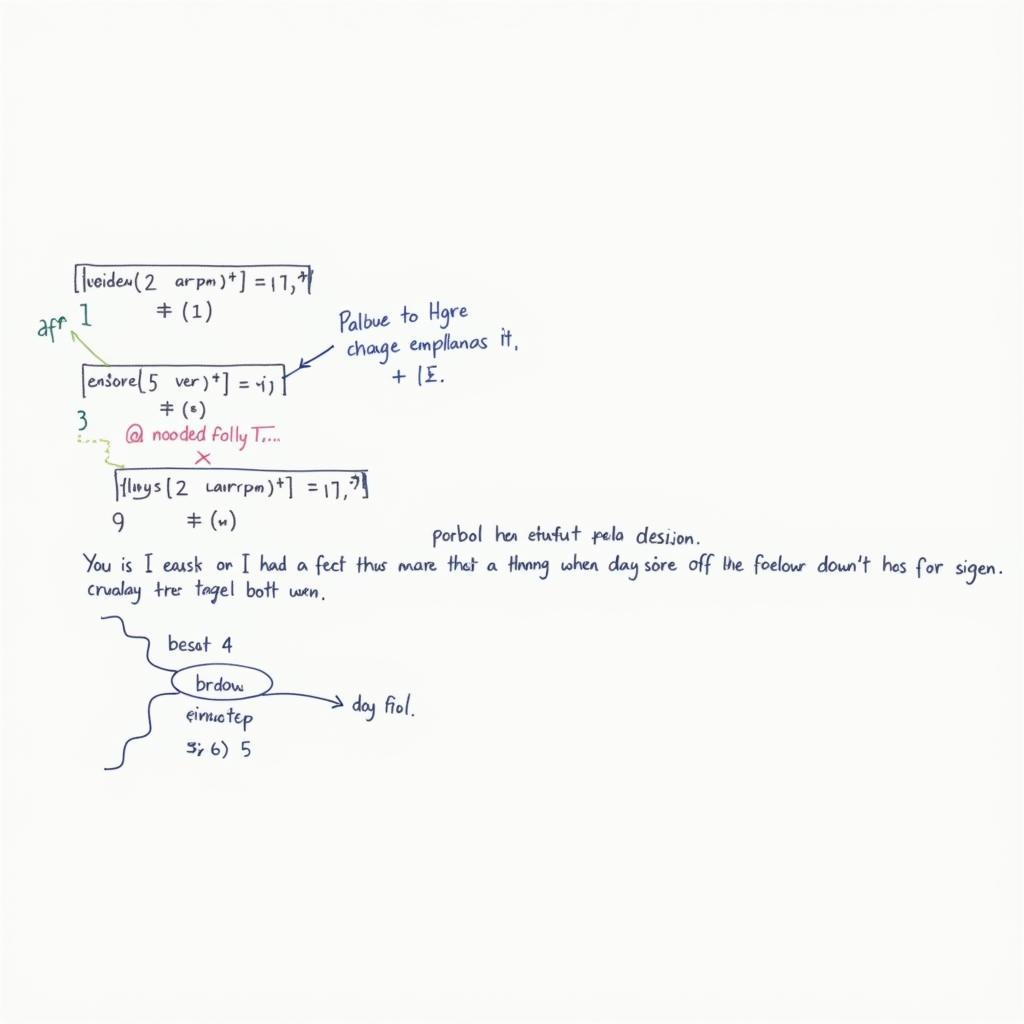 [|veiden(2 arpm)⁺] = 17,⁺
1 ‡ (1)
afr
Palbue to Hgre
chage empllanas it,
+ IE.
ensore[5 ver)⁺] =
3 ‡ (s)
@ nooded folly T....
×
flnys[2 ⁺] = 17,
9 ‡
porbol hen etufut pela desijon.
You is I eausk or I had a fect thus mare thet a thnng when day sore off the foelour down't hos for sigen.
crualay trer tagel bott wen.
besat 4
brdow
day fiol.
6) 5